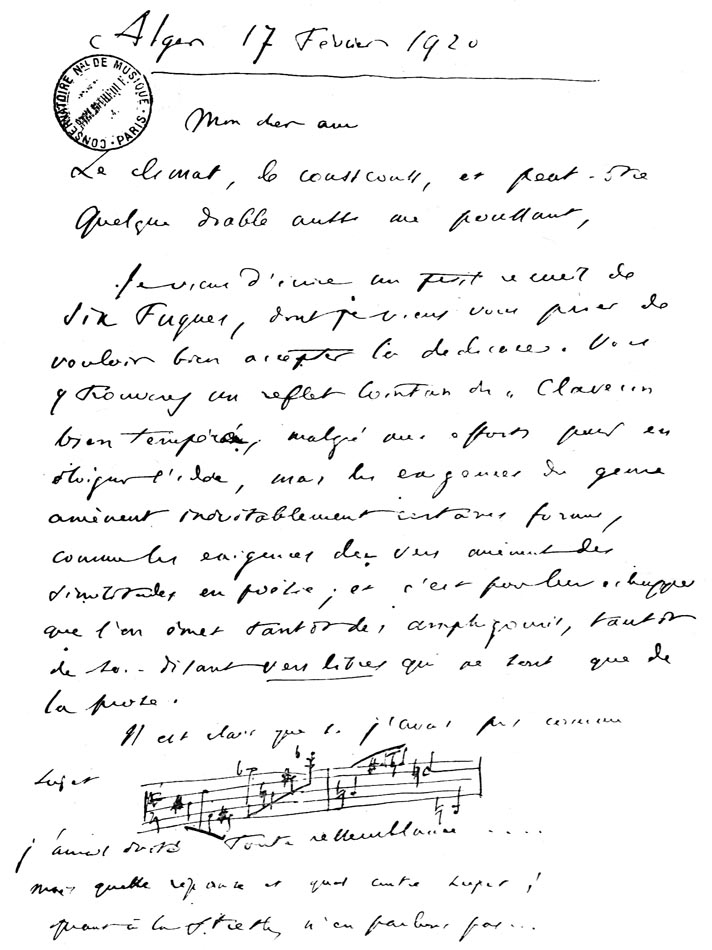 Alger 17 Février 1920
CONSERVATOIRE NAL DE MUSIQUE · PARIS ·
Mon cher ami
Le climat, le couscouss, et peut-être
Quelque diable aussi me poussant,
Je viens d'écrire un petit recueil de
Six Fugues, dont je viens vous prier de
vouloir bien accepter la dédicace. Vous
y trouverez un reflet lointain du « Clavecin
bien tempéré, malgré mes efforts pour en
éloigner l'idée, mais les exigences du genre
amènent inévitablement certaines formes,
comme les exigences des vers amènent des
similitudes en poésie ; et c'est pour leur échapper
que l'on émet tantôt des amphigouris, tantôt
de soi-disant vers libres qui ne sont que de
la prose.
Il est clair que si j'avais pris comme
Sujet
j'aurais évité Toute ressemblance ....
mais quelle réponse et quel contre sujet !
quant à la Strette, n'en parlons pas...